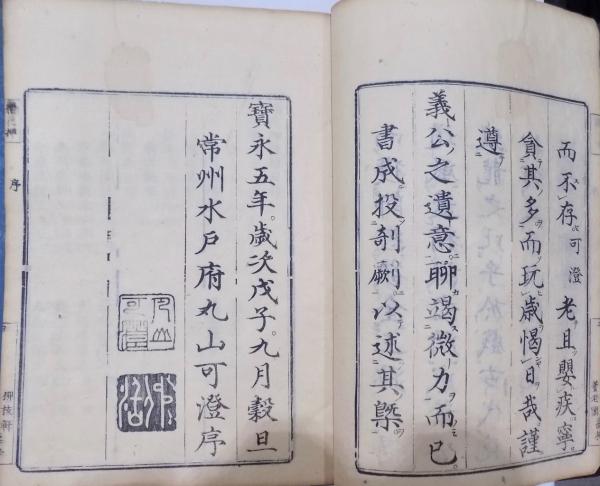 而不存可澄老且嬰疾寧
貪其多而玩歲愒日哉謹
遵
義公之遺意聊竭微力而已
書成投剞劂以述其槩
寶永五年歲次戊子九月穀旦
常州水戶府丸山可澄序
丸山
可澄
序